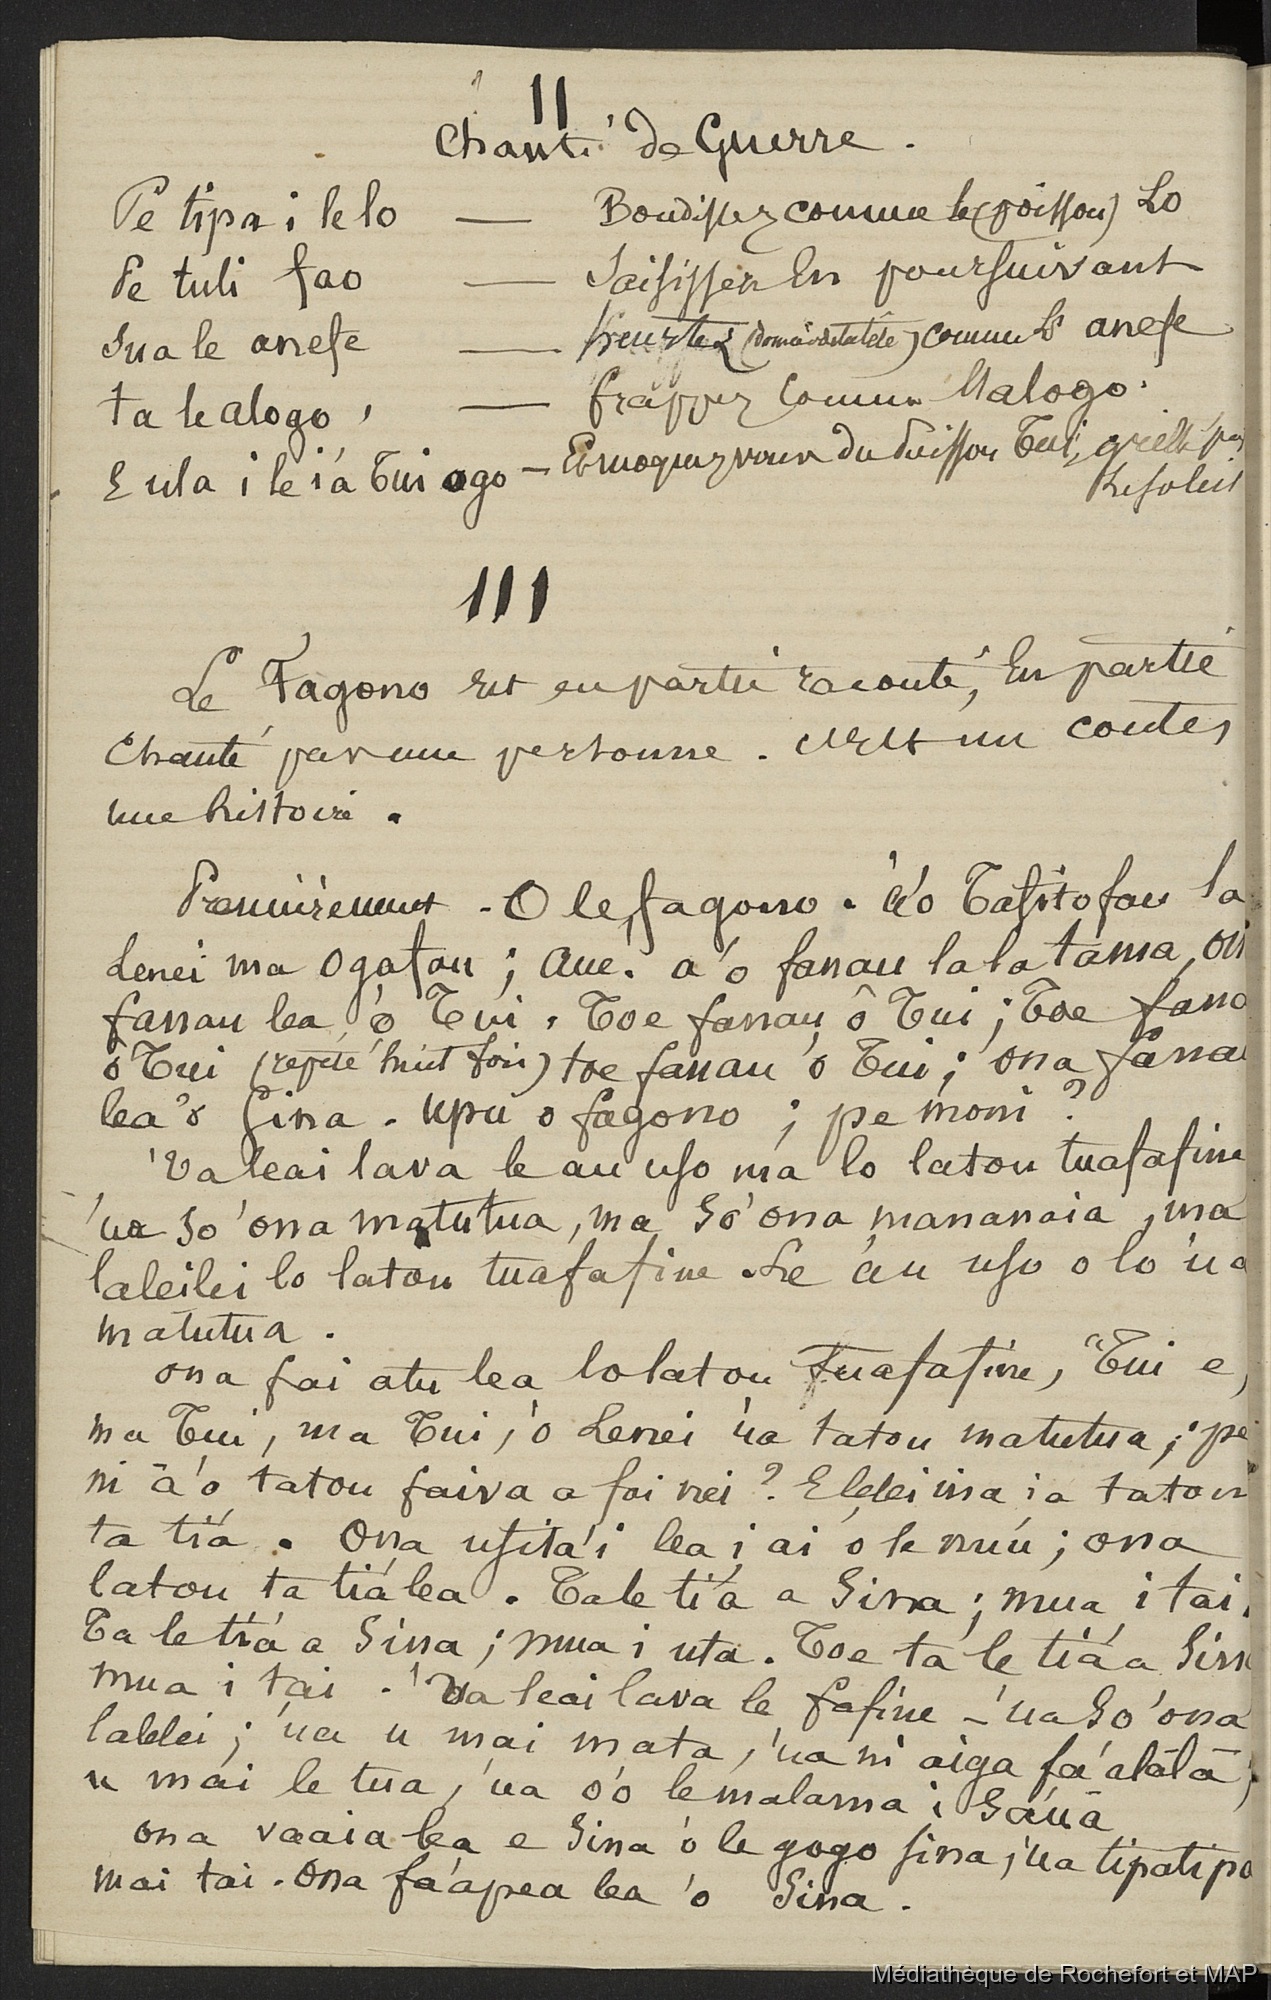 II
Chanté de Guerre.
Pe tipa i le lo — Bondissez comme le (poisson) Lo
Pe tuli fao — Saisissez en poursuivant
Sua le anefe — heurtez comme l' anefe
ta le alogo, — frappez comme l'Ialogo.
E ula i le i'a Tui ogo — Et moquez vous du poisson Tui, grillé par
le soleil
III
Le Fagono est en partie raconté, en partie
chanté par une personne. C'est un contes
une histoire.
Premièrement. O le fagono. a'o Tafitofau la
Lenei ma Ogafau; Aue. a'o fanau la la tama, On
fanau lea 'o Tui. Toe fanau o Tui; Toe fana
o Tui (repété huit fois) toe fanau o Tui; ona fana
lea 'o Sina. Upu o fagono; pe moni?
'Ua leai lava le au uso ma lo latou tuafafine
'ua so'ona matutua, ma so'ona mananaia, ma
laleilei lo latou tuafafine. Le au uso o lo 'ua
matutua.
ona fai atu lea lo latou tuafafine, "Tui e,
ma Tui, ma Tui, 'o Lenei 'ua tatou matutua; pe
ni a'o tatou faiva a fai nei? E lelei ina ia tatou
ta ti'a. Ona usita'i lea i ai o le nu'u; ona
latou ta ti'a lea. Ta le ti'a a Sina; mua i tai.
Ta le ti'a a Sina; mua i uta. Toe ta le ti'a a Sina
mua i tai. 'Ua leai lava le fafine - 'ua so'ona
lalelei; 'ua u mai mata, 'ua ni aiga fa'alālā;
u mai le tua, 'ua o'o le malama i Sa'uā
ona vaaia lea e Sina 'o le gogo sina, 'ua tipatipa
mai tai. Ona fa'apea lea 'o Sina.
Médiathèque de Rochefort et MAP